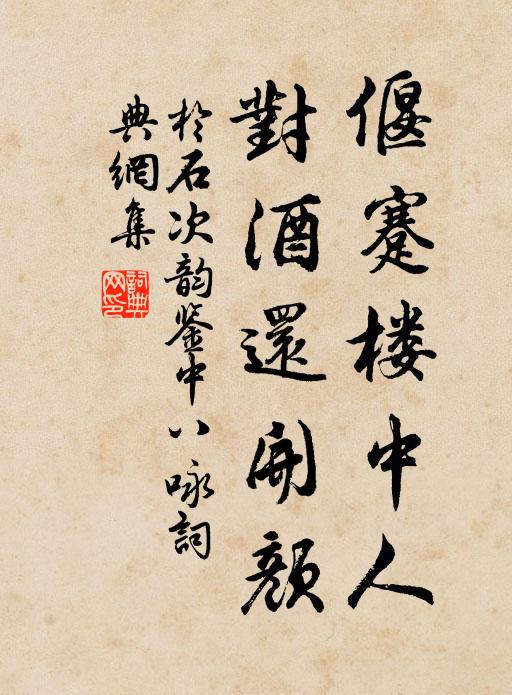 偃蹇楼中人
對酒還開顔
於石次韵鉴中八咏詞
典網集
詞典网印